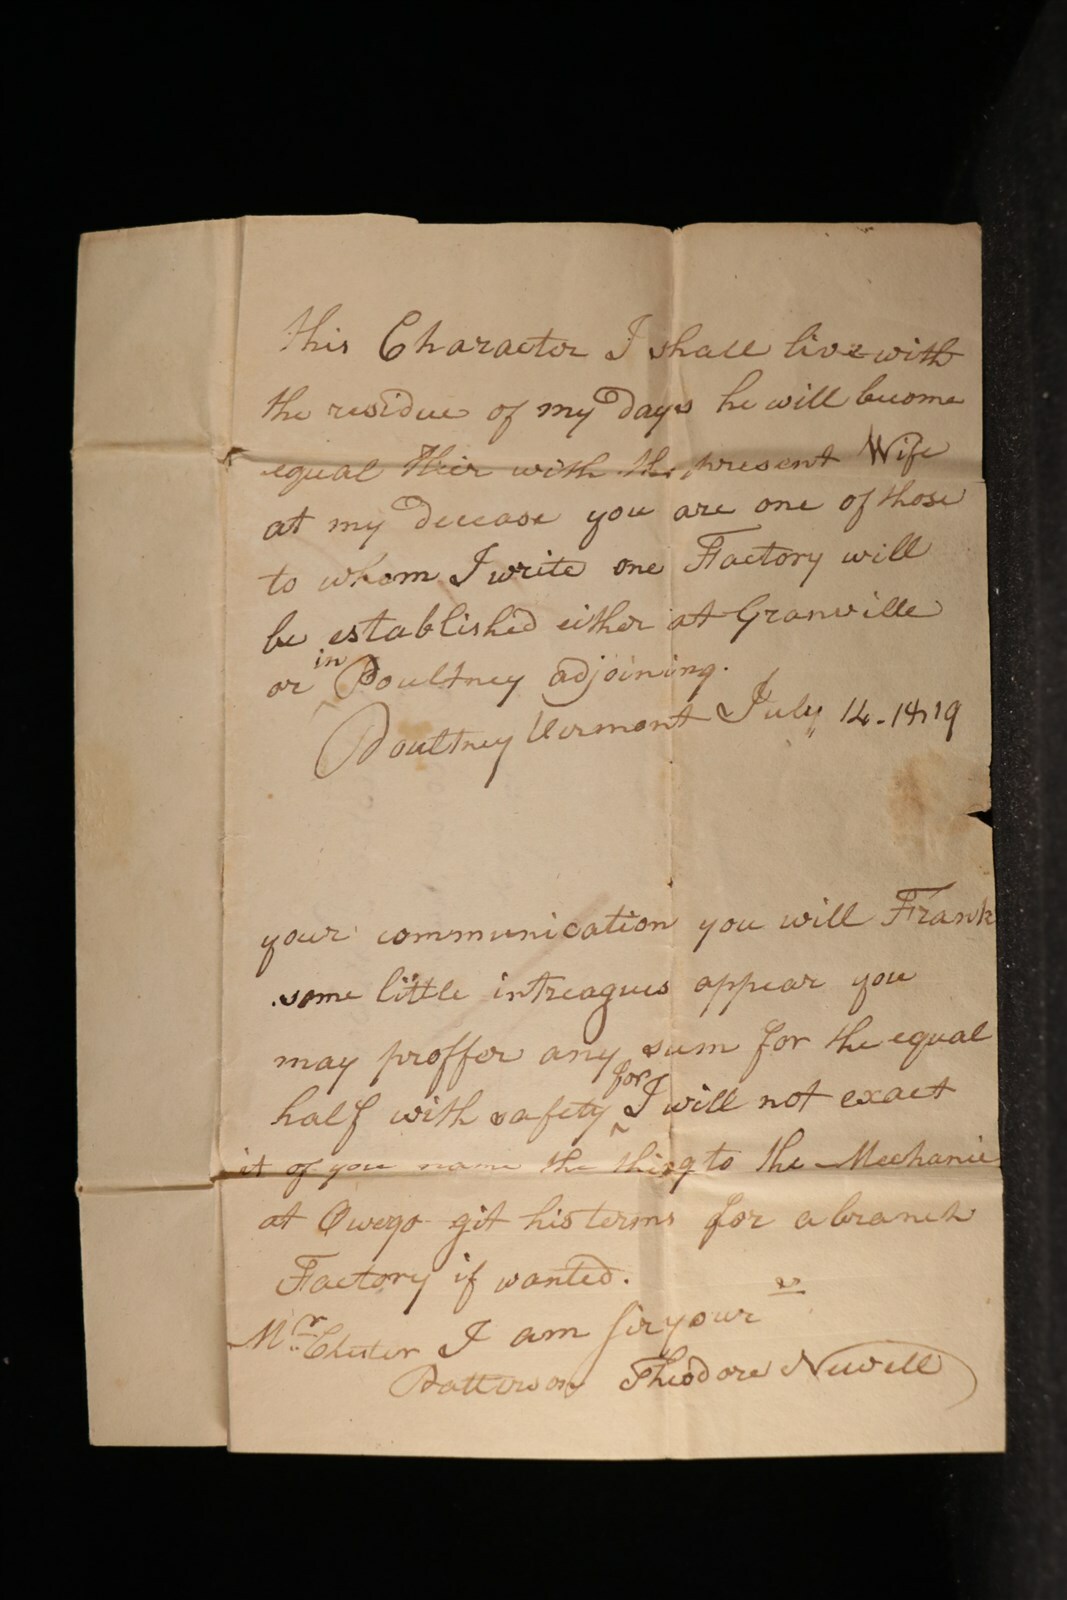 this Character I shall live with
the residue of my Days he will become
equal Heir with the present Wife
at my decease you are one of those
to whom I write one Factory will
be established either at Granville
or in Poultney adjoining.
Poultney Vermont July 14-1819
your communication you will Frank
some little intreagues appear you
may proffer any sum for the equal
half with safety for I will not exact
it of you name the thing to the Mechanic
at Owego git his terms for a branch
Factory if wanted.
Mr Chester I am sir your
Patterson Theodore Newell